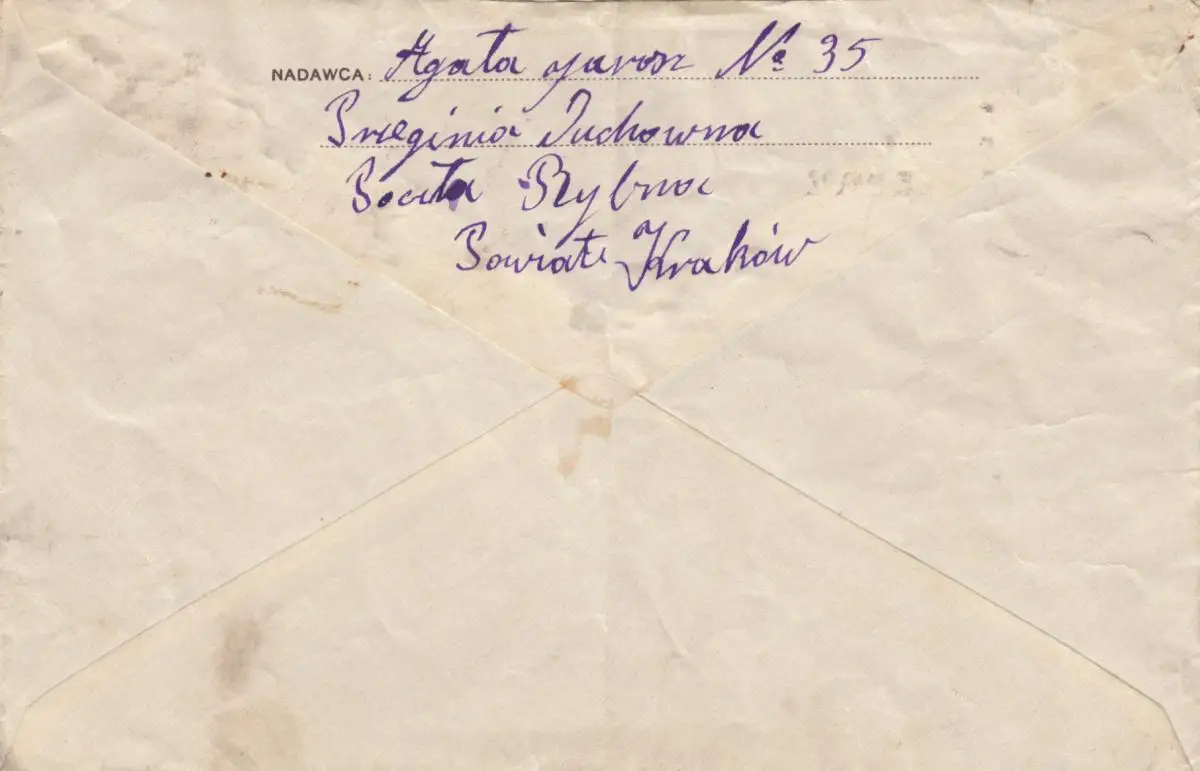 NADAWCA: Agata Jarosz № 35
Przeginia Duchowna
Poczta Rybna
Powiat Kraków